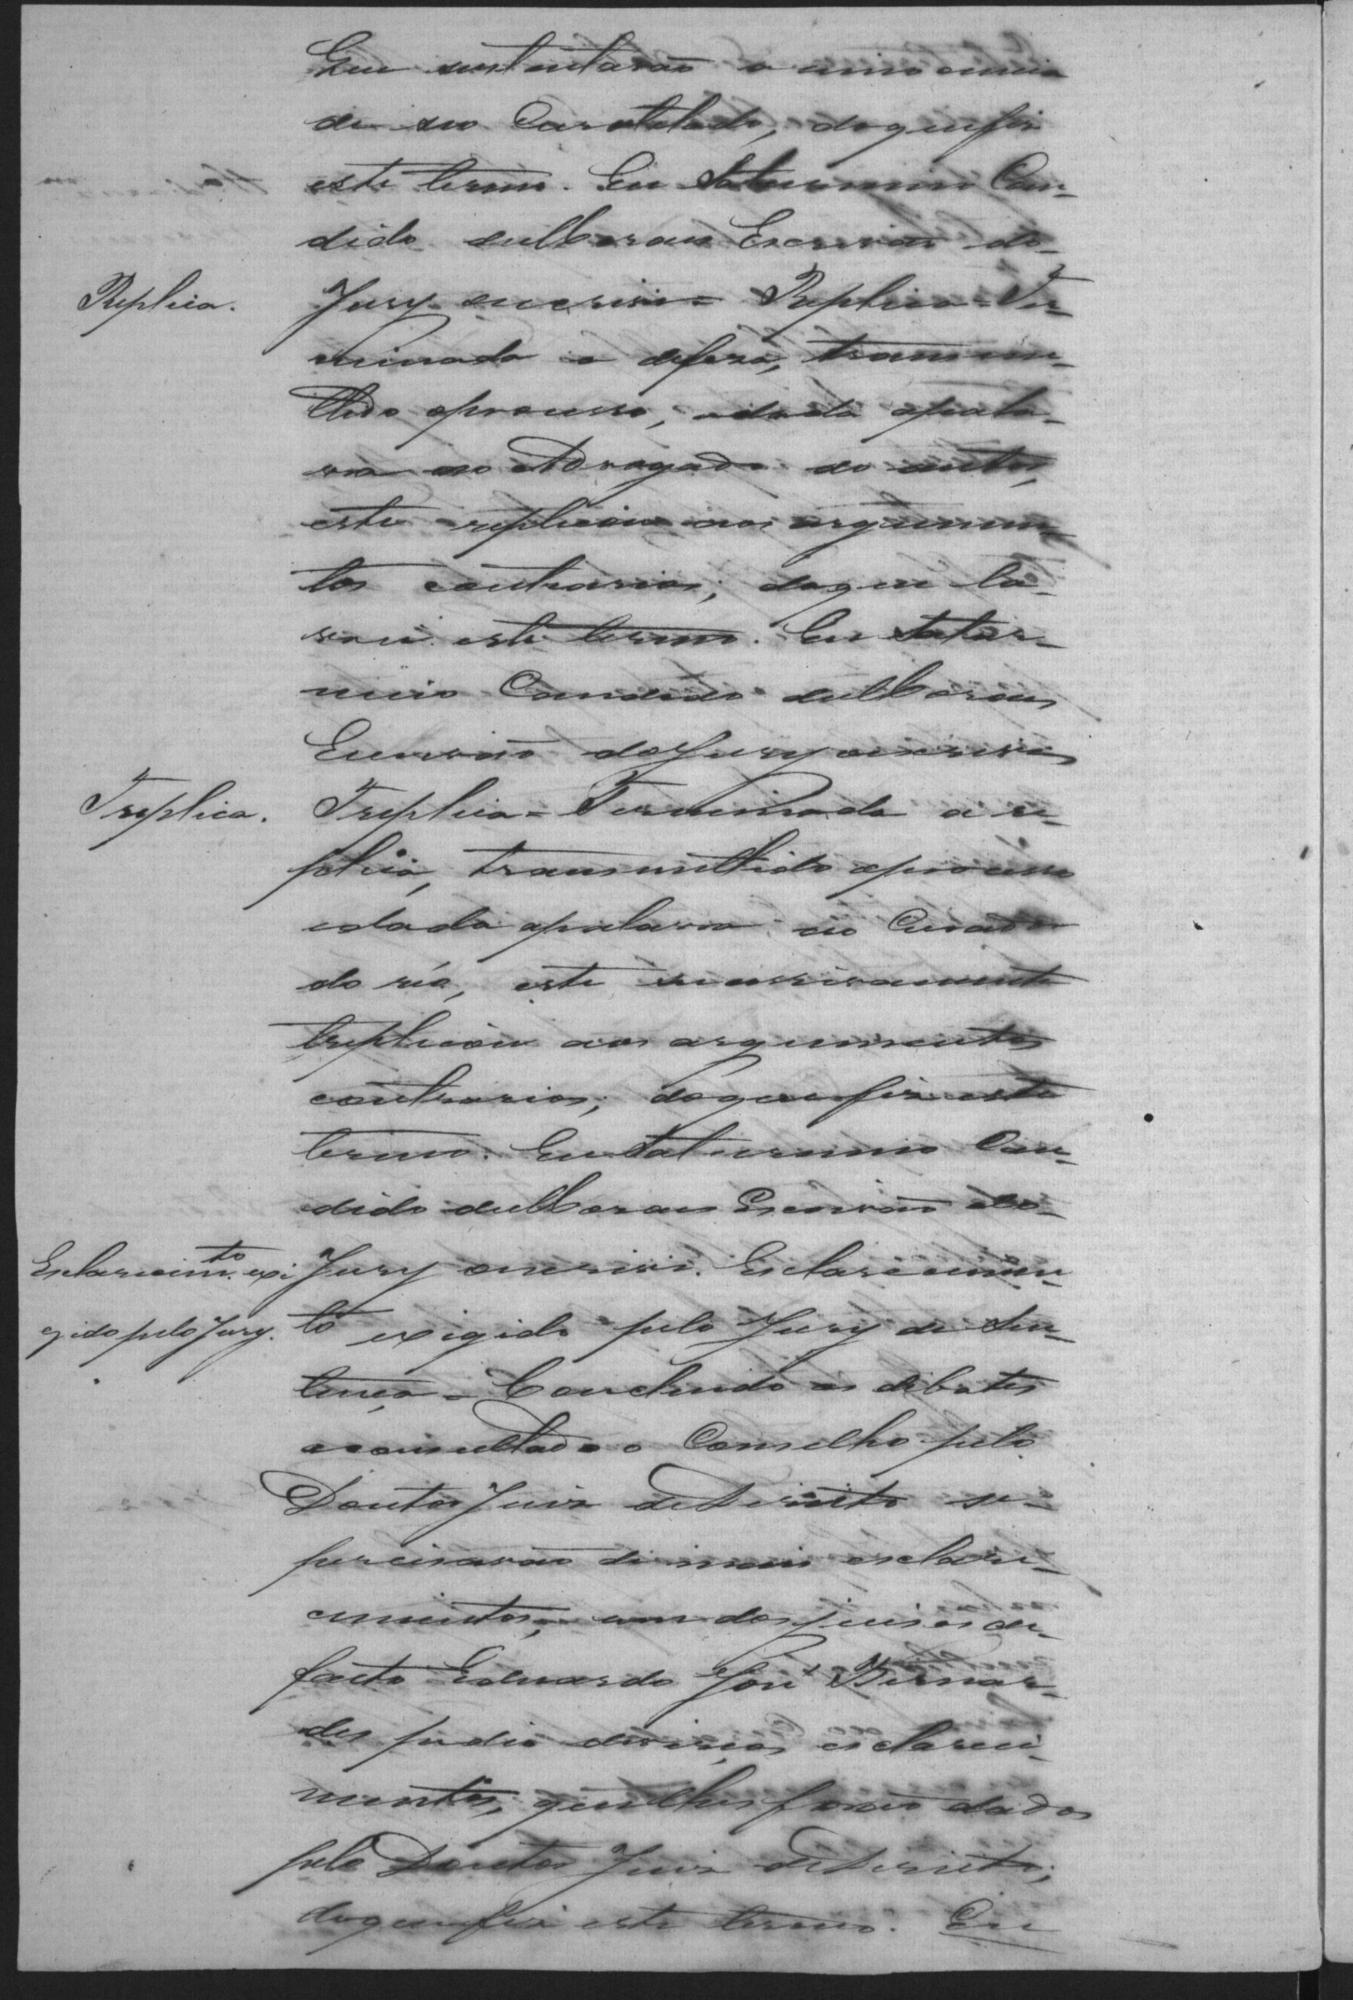 que sustentarão a innocencia
de seo Curatelado, do que fiz
este termo. Eu Saturnino Can-
dido de Moraes Escrivão do
Replica.
Jury escrivi = Replica = Ter-
minada a defeza, transmi-
ttido o processo, e dada a pala-
vra ao Advogado do autor,
este replicou aos argumen-
tos contrarios; do que la-
vrei este termo. Eu Satur-
nino Candido de Moraes
Escrivão do Jury escrivi
Treplica.
Treplica = Terminada a re-
plica, transmittido o processo
e dada a palavra ao Curador
do réo, este successivamente
treplicou aos argumentos
contrarios; do que fiz este
termo. Eu Saturnino Can-
dido de Moraes Escrivão do
Esclarecimto. exi
gido pelo Jury.
Jury escrivi. Esclarecimen-
to exigido pelo Jury de Sen-
tença = Concluido os debates
e consultado o Conselho pelo
Doutor Juiz de Direito se
precisavão de mais esclare-
cimentos, um dos juises de
facto Eduardo José Bernar-
des pedio diversos esclareci-
mentos, que lhes forão dados
pelo Doutor Juiz de Direito;
do que fiz este termo. Eu